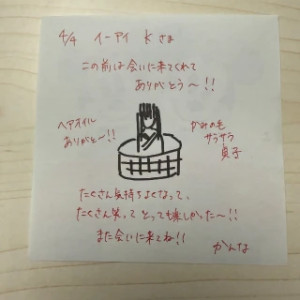 4/4 イーアイ Kさま
この前は会いに来てくれて
ありがとう〜!!
ヘアオイル
ありがと〜!!
かみの毛
サラサラ
貞子
たくさん気持ちよくなって、
たくさん笑って とっても嬉しかった〜!!
また会いに来てね!!
かんな